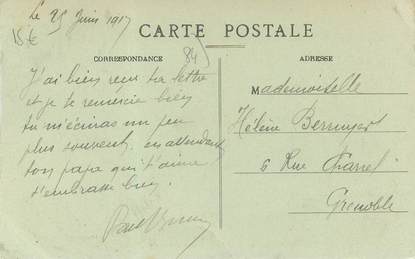 Le 25 Juin 1917
15€
CARTE POSTALE
84
CORRESPONDANCE
J'ai bien reçu ta lettre
et je te remercie bien
tu m'écriras un peu
plus souvent. en attendant
ton papa qui t'aime
t'embrasse bien.
Paul
ADRESSE
Mademoiselle
Hélène
6 Rue Charrel
Grenoble